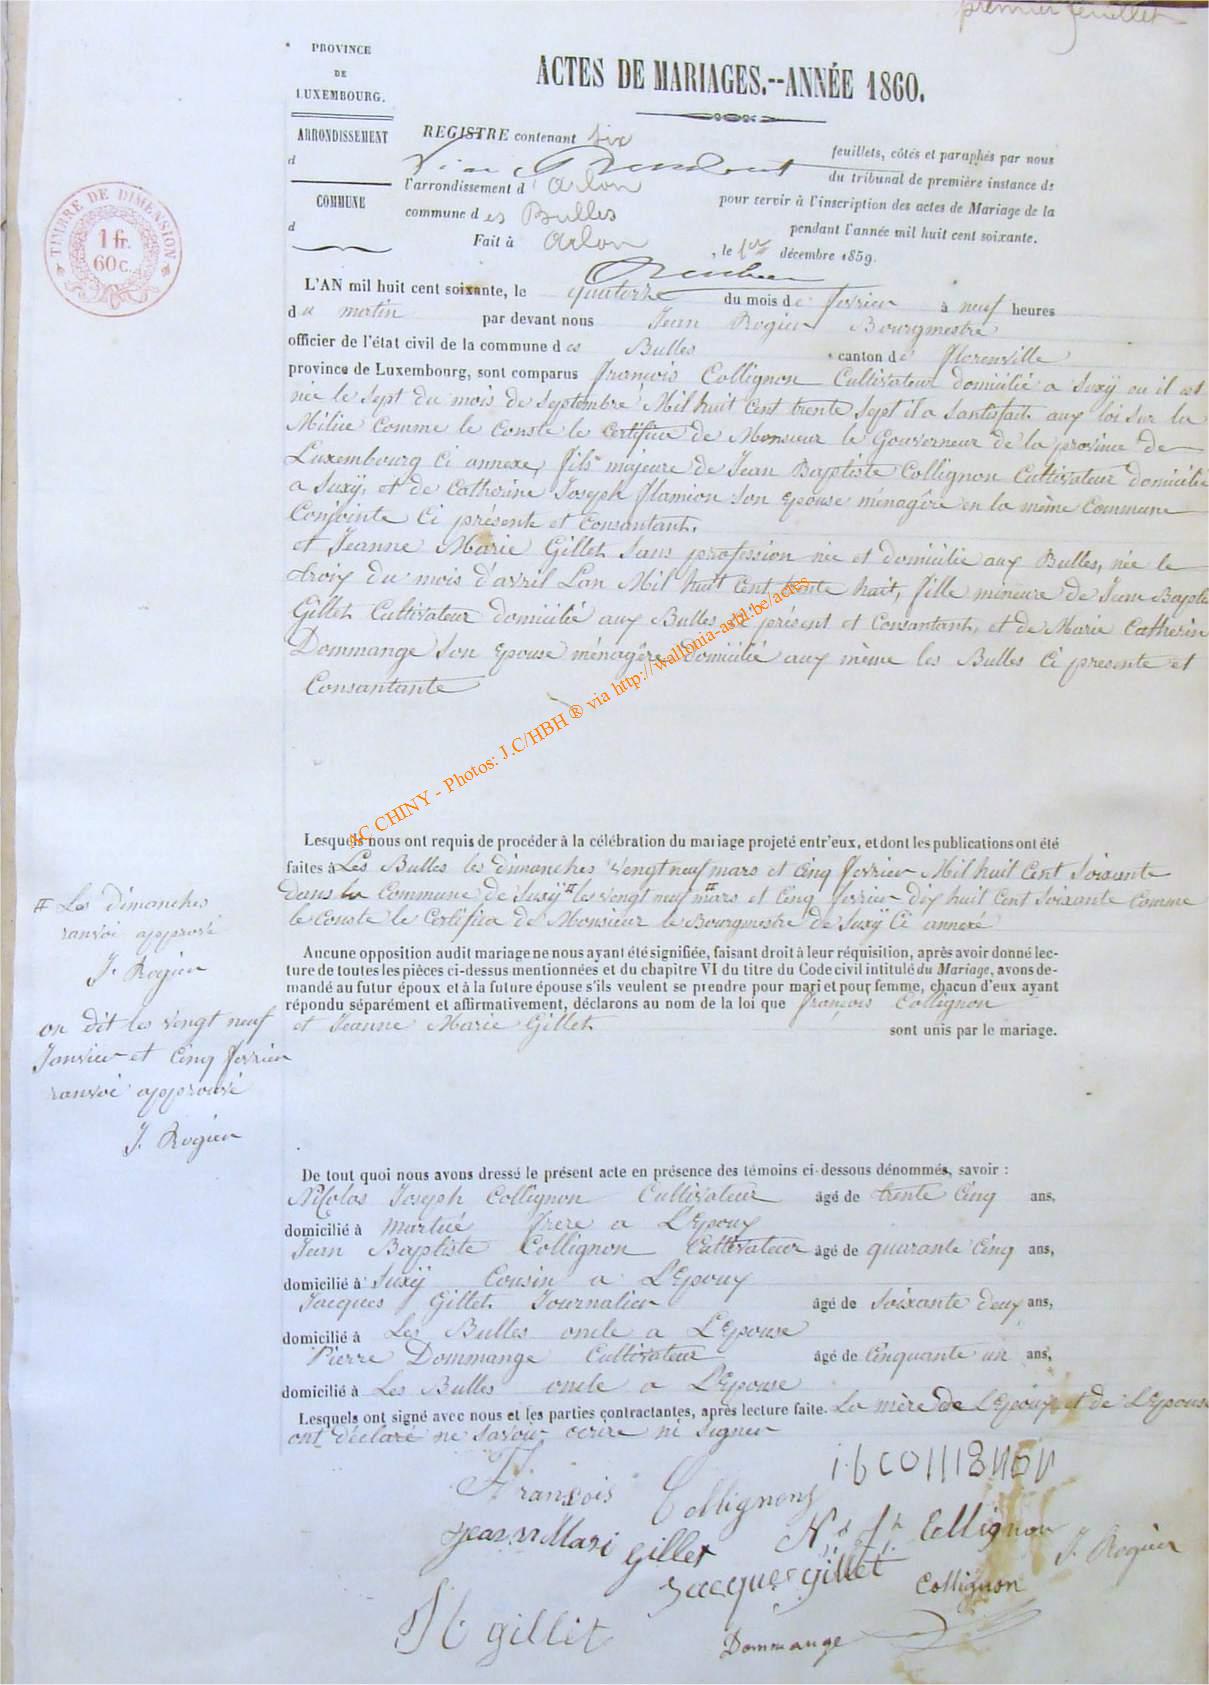 premier feuillet
PROVINCE
DE
LUXEMBOURG.
ARRONDISSEMENT
d
COMMUNE
d
TIMBRE DE DIMENSION
1 fr.
60 c.
ACTES DE MARIAGES.--ANNÉE 1860.
REGISTRE contenant six feuillets, côtés et paraphés par nous
du tribunal de première instance de
l'arrondissement d'Arlon pour servir à l'inscription des actes de Mariage de la
commune des Bulles pendant l'année mil huit cent soixante.
Fait à Arlon, le 1er décembre 1859.
L'AN mil huit cent soixante, le quatorze du mois de fevrier à neuf heures
du matin par devant nous Jean Rogier Bourgmestre
officier de l'état civil de la commune des Bulles canton de florenville
province de Luxembourg, sont comparus françois Collignon Cultivateur domicilié a Suxÿ ou il est
née le sept du mois de septembre Mil huit cent trente sept il a santisfait aux loi sur la
Milice comme le conste le certifica de Monsieur le Gouverneur de la province de
Luxembourg ci annexé, fils majeure de Jean Baptiste Collignon Cultivateur domicilié
a Suxÿ, et de Catherine Joseph flamion son epouse ménagère en la même commune
Conjointe ci présente et Consantant.
et Jeanne Marie Gillet sans profession née et domicilie aux Bulles, née le
troix du mois d'avril L'an Mil huit Cent trente huit, fille mineure de Jean Baptis
Gillet Cultivateur domicilié aux Bulles ci présent et Consantant, et de Marie Catherin
Dommange son epouse ménagère domicilié aux même les Bulles ci presente et
Consantante
AC CHINY - Photos: J.C/HBH ® via http://wallonia-asbl.be/actes
Lesquels nous ont requis de procéder à la célébration du mariage projeté entr'eux, et dont les publications ont été
faites à Les Bulles les dimanches vengt neuf mars et cinq fevrier Mil huit Cent Soixante
dans la Commune de Suxÿ # les vengt neuf # mars et cinq fevrier dix huit Cent Soixante comme
le conste le certifica de Monsieur le Bourgmestre de Suxÿ ci annexé
# Les dimanches
ranvoi apprové
J. Rogier
on dit les vengt neuf
Janvier et cinq fevrier
ranvoi approuvé
J. Rogier
Aucune opposition audit mariage ne nous ayant été signifiée, faisant droit à leur réquisition, après avoir donné lec-
ture de toutes les pièces ci-dessus mentionnées et du chapitre VI du titre du Code civil intitulé du Mariage, avons de-
mandé au futur époux et à la future épouse s'ils veulent se prendre pour mari et pour femme, chacun d'eux ayant
répondu séparément et affirmativement, déclarons au nom de la loi que françois Collignon
et Jeanne Marie Gillet sont unis par le mariage.
De tout quoi nous avons dressé le présent acte en présence des témoins ci-dessous dénommés, savoir :
Nicolas Joseph Collignon Cultivateur âgé de trente Cinq ans,
domicilié à martué frere a L'epoux
Jean Baptiste Collignon Cultivateur âgé de quarante Cinq ans,
domicilié à Suxÿ Cousin a L'Epoux
Jacques Gillet Journalier âgé de Soixante deux ans,
domicilié à Les Bulles oncle a L'Epouse
Pierre Dommange Cultivateur âgé de Cinquante un ans,
domicilié à Les Bulles oncle a L'Epouse
Lesquels ont signé avec nous et les parties contractantes, après lecture faite. La mère de L'Epoux et de L'Epouse
ont déclaré ne savoir ecrire ni signer
François Collignon
Jeann Mari gillet
Collignon
J. Rogier
Jacques gillet
Collignon
gillet
Dommange